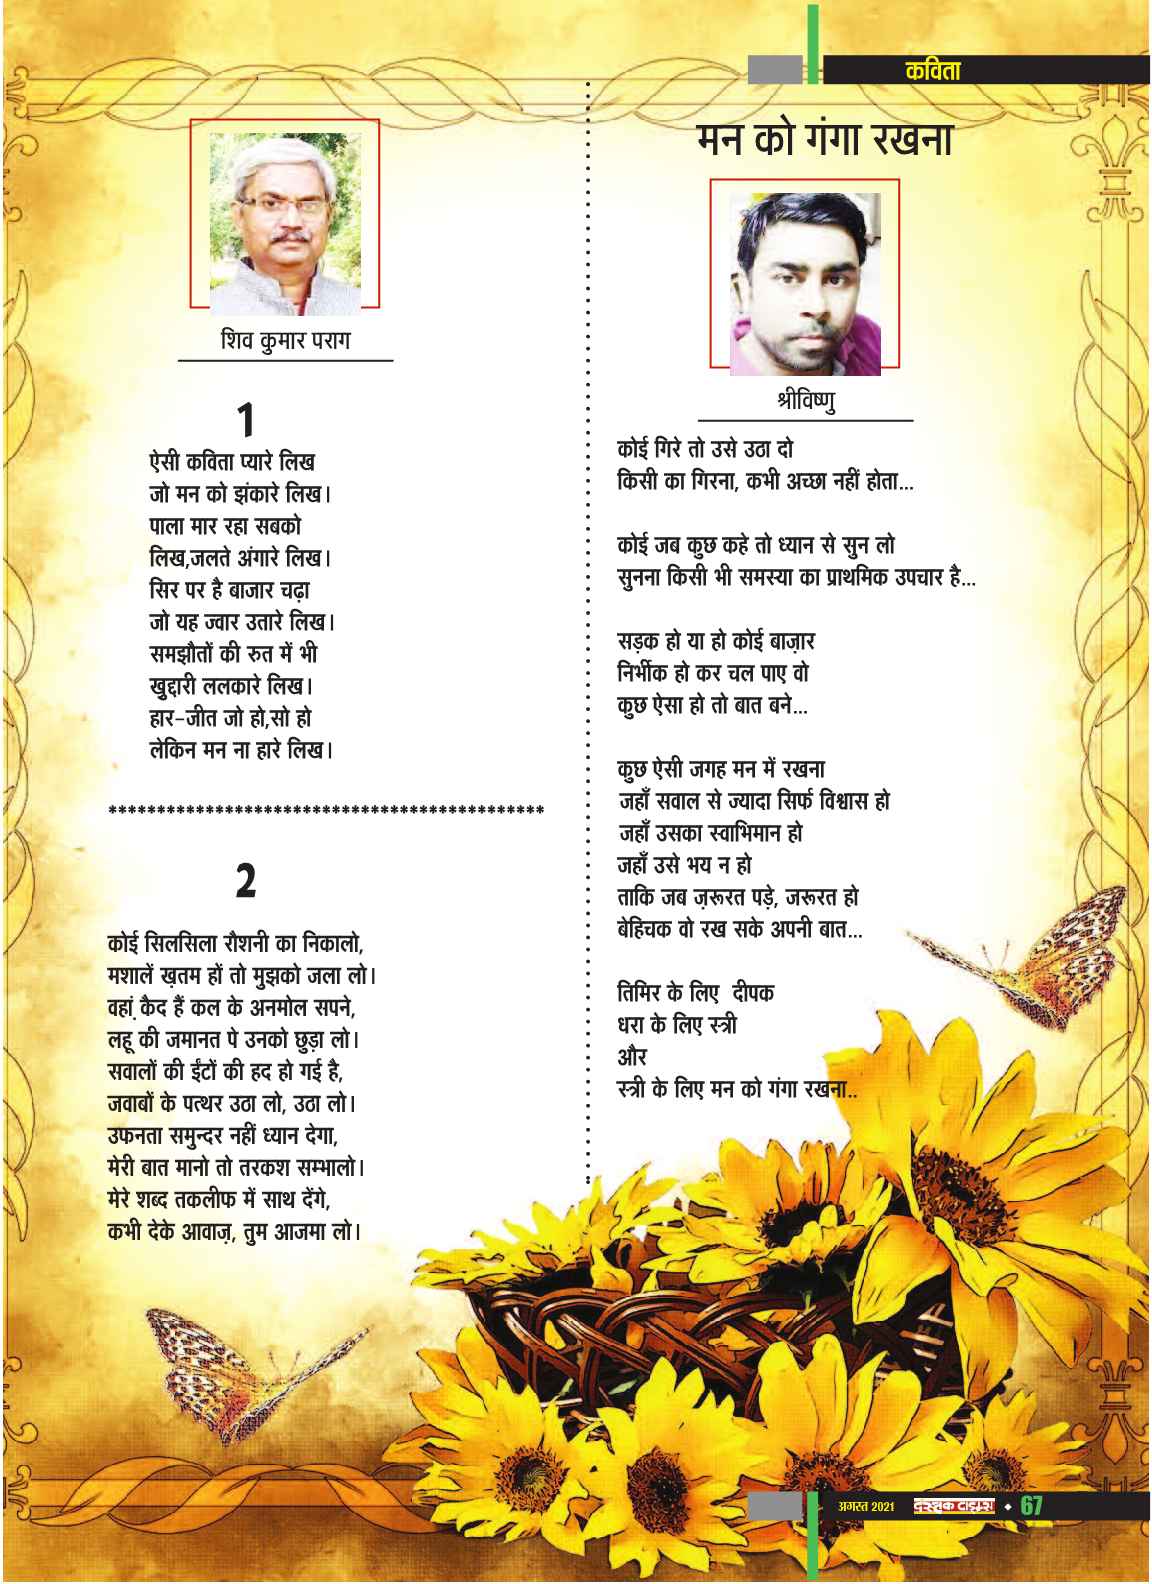 कविता
शिव कुमार पराग
1
ऐसी कविता प्यारे लिख
जो मन को झंकारे लिख।
पाला मार रहा सबको
लिख,जलते अंगारे लिख।
सिर पर है बाजार चढ़ा
जो यह ज्वार उतारे लिख।
समझौतों की रुत में भी
खुद्दारी ललकारे लिख।
हार-जीत जो हो,सो हो
लेकिन मन ना हारे लिख।
*********************************************
2
कोई सिलसिला रौशनी का निकालो,
मशालें ख़तम हों तो मुझको जला लो।
वहां क़ैद हैं कल के अनमोल सपने,
लहू की जमानत पे उनको छुड़ा लो।
सवालों की ईंटों की हद हो गई है,
जवाबों के पत्थर उठा लो, उठा लो।
उफनता समुन्दर नहीं ध्यान देगा,
मेरी बात मानो तो तरकश सम्भालो।
मेरे शब्द तकलीफ में साथ देंगे,
कभी देके आवाज़, तुम आजमा लो।
मन को गंगा रखना
श्रीविष्णु
कोई गिरे तो उसे उठा दो
किसी का गिरना, कभी अच्छा नहीं होता...
कोई जब कुछ कहे तो ध्यान से सुन लो
सुनना किसी भी समस्या का प्राथमिक उपचार है...
सड़क हो या हो कोई बाज़ार
निर्भीक हो कर चल पाए वो
कुछ ऐसा हो तो बात बने...
कुछ ऐसी जगह मन में रखना
जहाँ सवाल से ज्यादा सिर्फ विश्वास हो
जहाँ उसका स्वाभिमान हो
जहाँ उसे भय न हो
ताकि जब ज़रूरत पड़े, जरूरत हो
बेहिचक वो रख सके अपनी बात...
तिमिर के लिए दीपक
धरा के लिए स्त्री
और
स्त्री के लिए मन को गंगा रखना..
अगस्त 2021 दस्तक टाइम्स ◆ 67